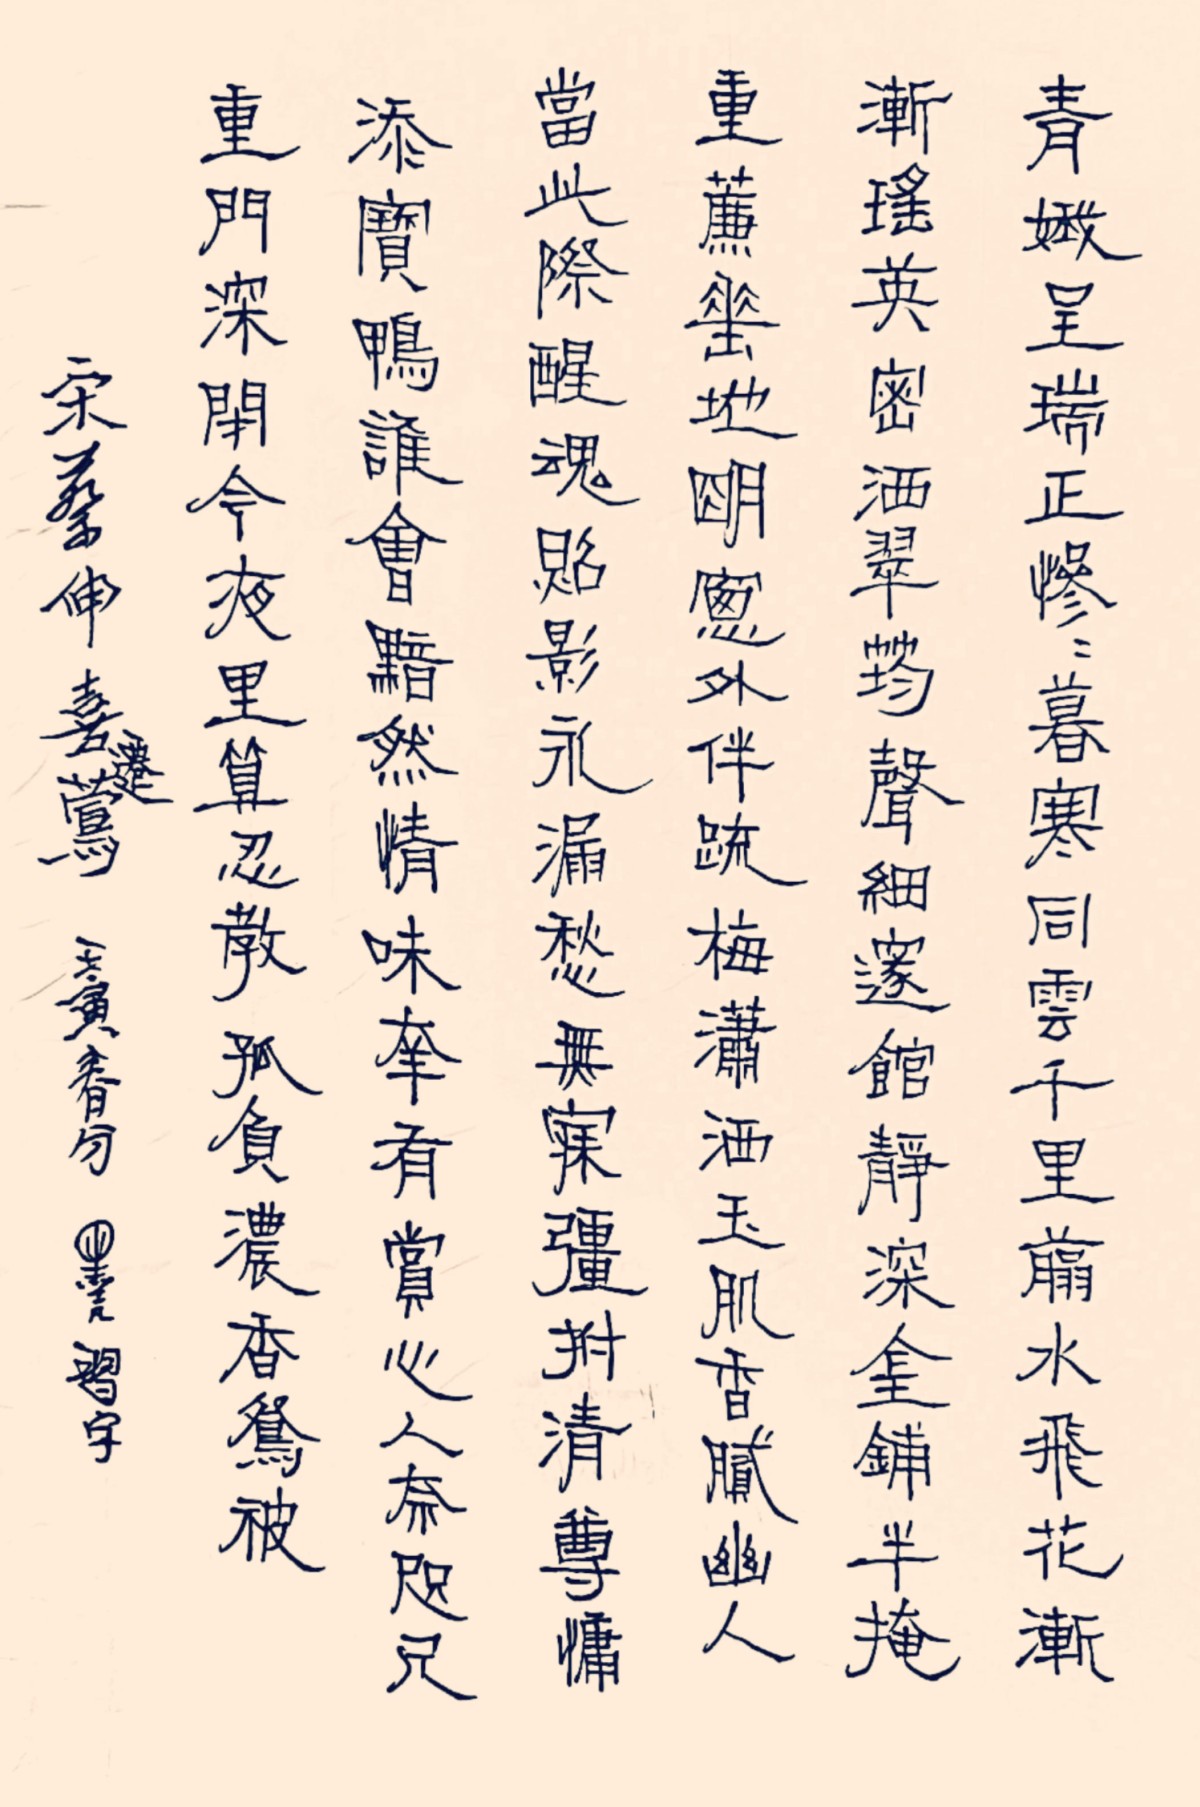 青娥呈瑞正慘〻暮寒同雲千里翦水飛花漸
漸瑤英密洒翠筠聲細邃館靜深金鋪半掩
重薕垂地明窗外伴疏梅瀟洒玉肌香膩幽人
當此際醒魂照影永漏愁無寐彊拊清尊慵
添寶鴨誰會黯然情味幸有賞心人奈咫尺
重門深閉今夜里算忍教孤負濃香鴛被
宋蔡伸喜遷鶯 壬寅春分 習字